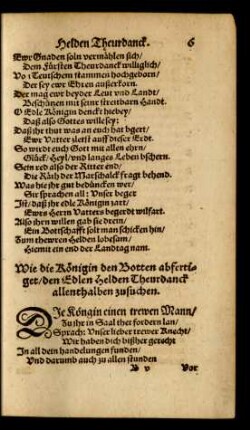 Helden Theurdanck. 6
Ewr Gnaden soln vermählen sich/
Dem Fürsten Theurdanck williglich/
Vō Teutschem stammen hochgeborn/
Der sey ewr Ehren außerkorn.
Der mag ewr beyder Leut vnd Landt/
Beschützen mit seinr streitbarn Handt.
O Edle Königin denckt hiebey/
Daß also Gottes wille sey:
Daß ihr thut was an euch hat bgert/
Ewr Vatter zletst auff dieser Erdt.
So wirdt euch Gott mit allen ehrn/
Glück/ Heyl/ vnd langes Leben bschern.
Sein red also der Ritter end/
Die Räth der Marschalck fragt behend.
Was sie jhr gut bedüncken wer/
Sie sprachen all: Vnser beger
Ist/ daß ihr edle Königin zart/
Ewrs Herrn Vatters begerdt wilfart.
Also ihrn willen gab sie drein/
Ein Bottschafft solt man schicken hin/
Zum thewren Helden lobesam/
Hiemit ein end der Landtag nam.
Wie die Königin den Botten abferti-
get/ den Edlen Helden Theurdanck
allenthalben zusuchen.
DJe Köngin einen trewen Mann/
Zu jhr in Saal thet fordern lan/
Sprach: Vnser lieber trewer Knecht/
Wir haben dich bißher gerecht
In all dein handelungen funden/
Vnd darumb auch zu allen stunden
B v Vor